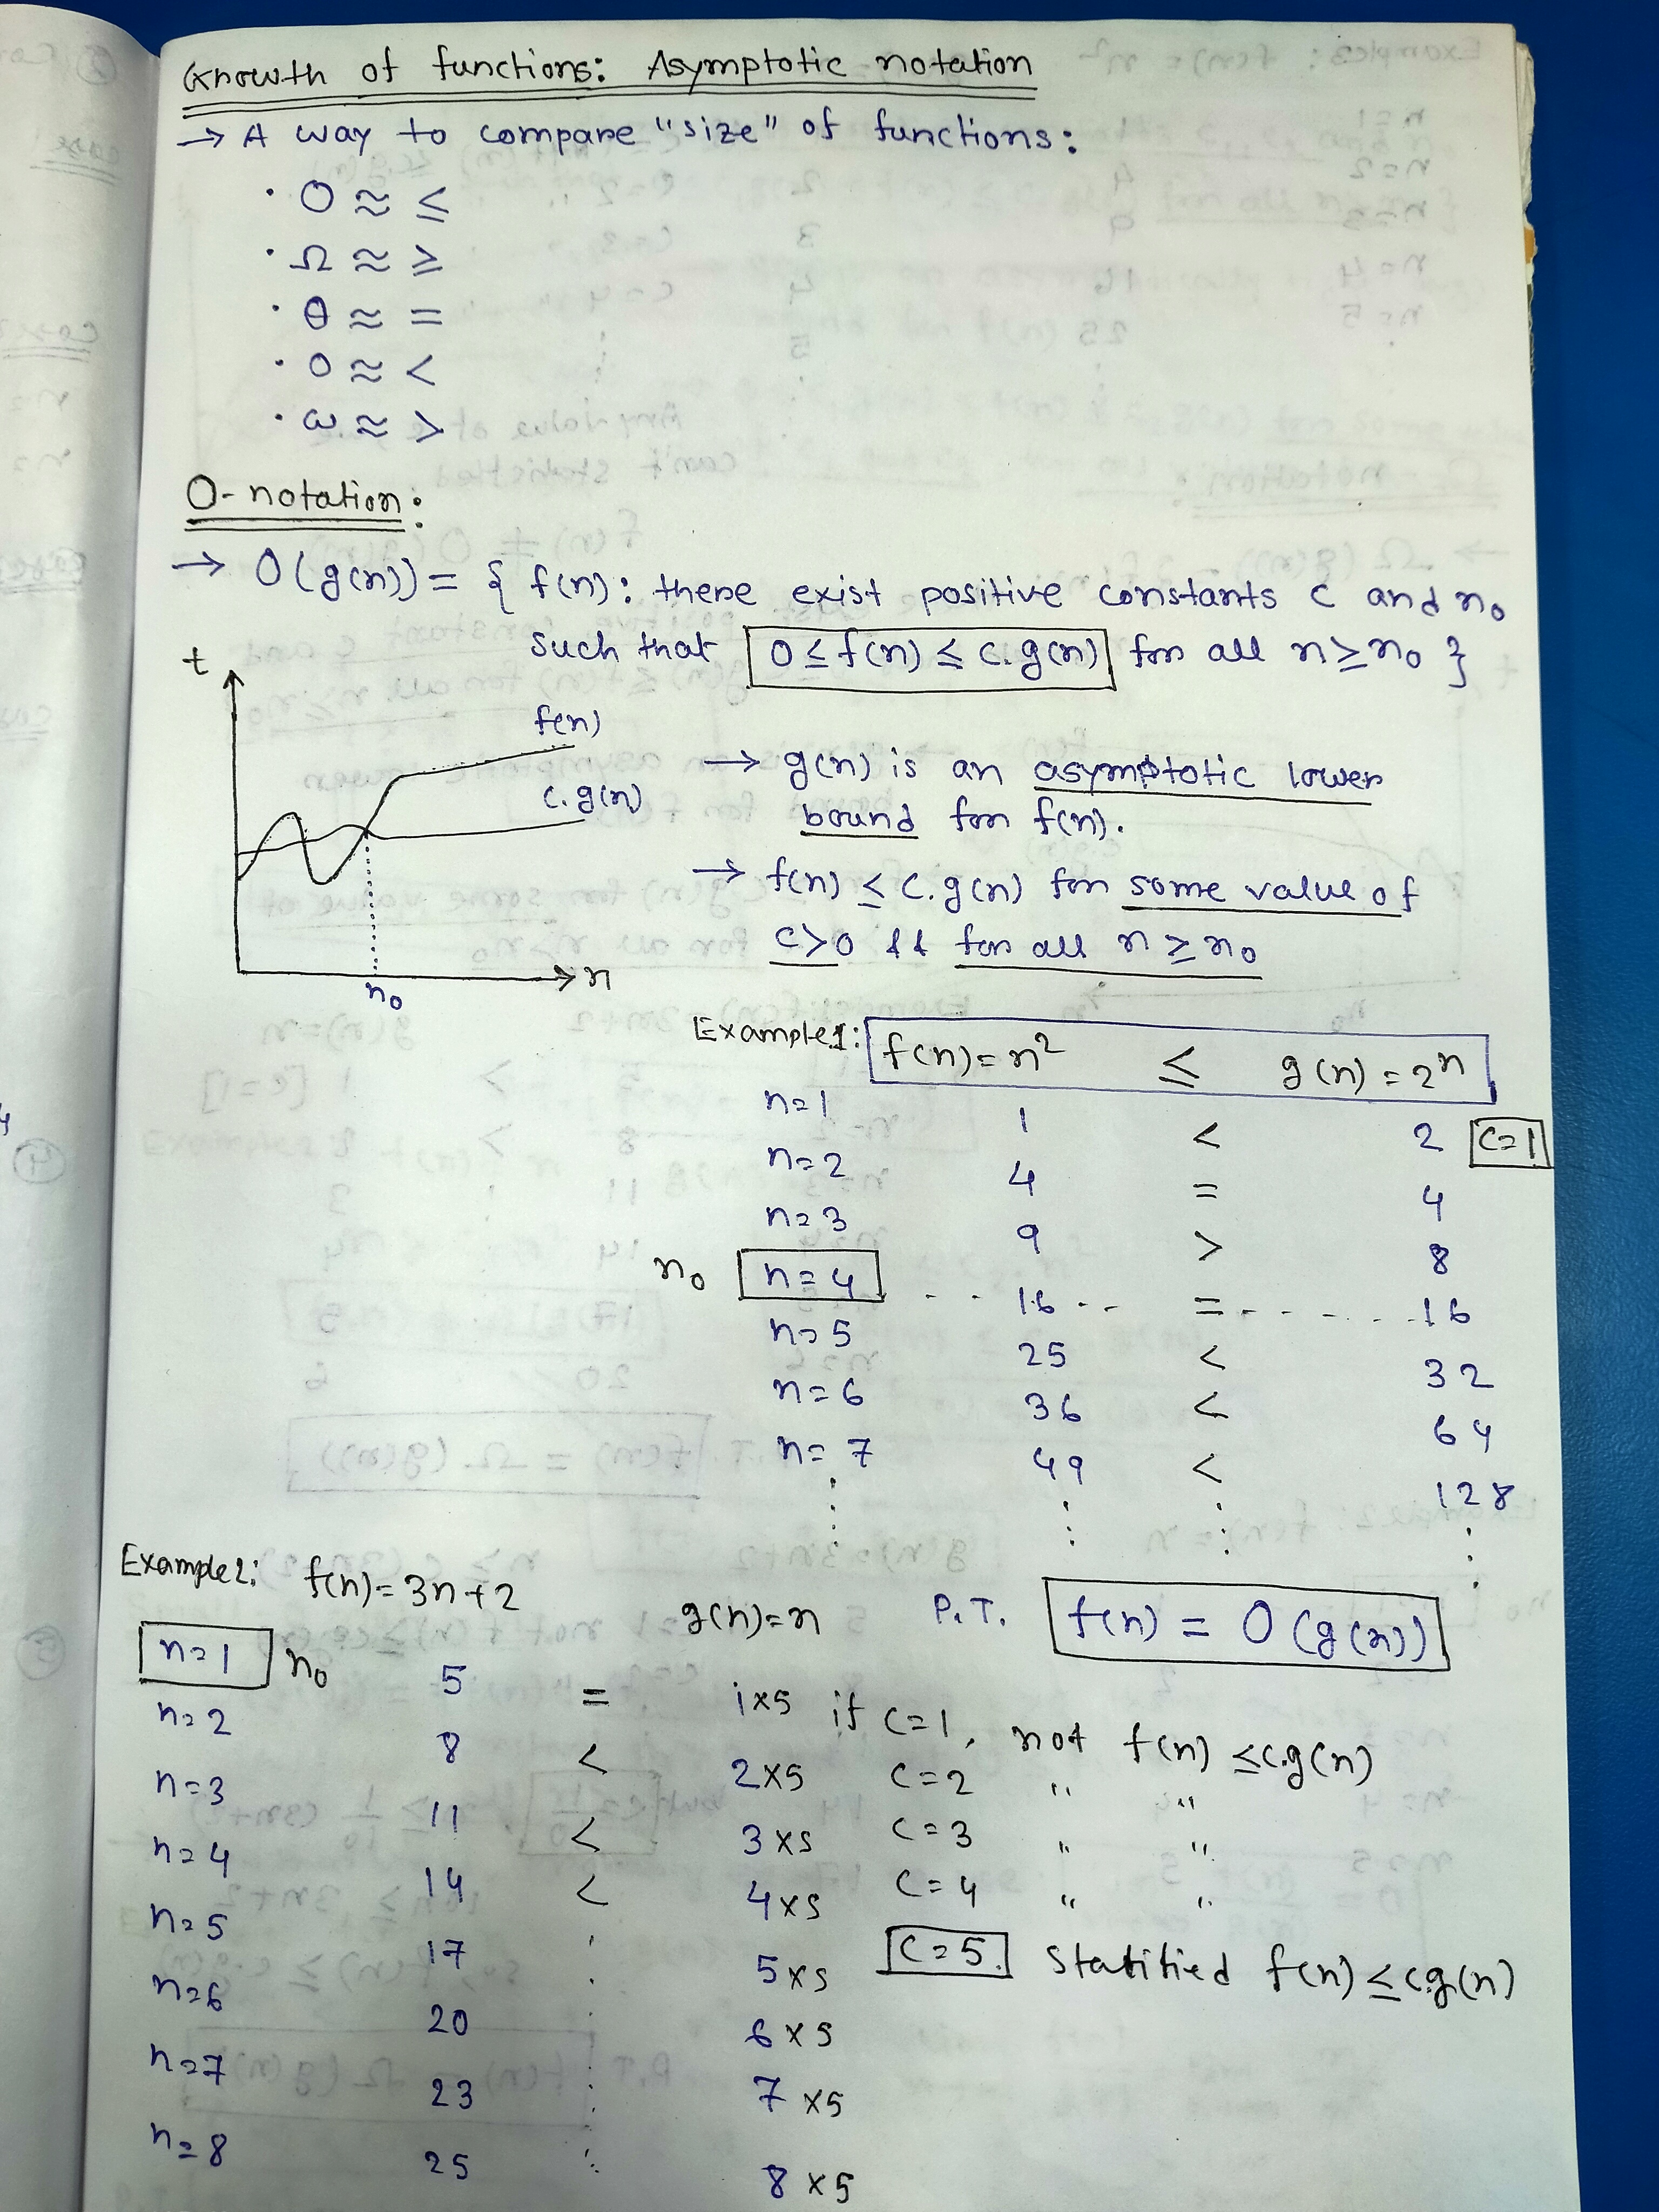 Growth of functions: Asymptotic notation
→ A way to compare "size" of functions:
· O ≈ ≤
· Ω ≈ ≥
· θ ≈ =
· o ≈ <
· ω ≈ >
O-notation:
→ O(g(n)) = { f(n): there exist positive constants c and n₀
such that 0 ≤ f(n) ≤ c.g(n) for all n ≥ n₀ }
t
f(n)
c.g(n)
n
n₀
→ g(n) is an asymptotic lower
bound for f(n).
→ f(n) ≤ c.g(n) for some value of
c>0 && for all n ≥ n₀
Example1: f(n)=n² ≤ g(n)=2ⁿ
n=1 1 < 2 C=1
n=2 4 = 4
n=3 9 > 8
n₀ n=4 16 = 16
n=5 25 < 32
n=6 36 < 64
n=7 49 < 128
Example2: f(n)=3n+2 g(n)=n P.T. f(n) = O(g(n))
n=1 n₀ 5 = 1x5 if C=1, not f(n) ≤ c.g(n)
n=2 8 < 2x5 C=2 " "
n=3 11 < 3x5 C=3 " "
n=4 14 < 4x5 C=4 " "
n=5 17 5x5 C=5. Statitied f(n) ≤ c.g(n)
n=6 20 6x5
n=7 23 7x5
n=8 25 8x5